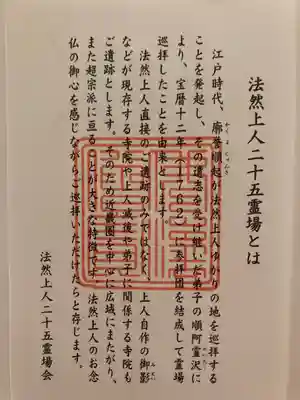 法然上人二十五霊場とは
江戸時代、廓誉順起が法然上人ゆかりの地を巡拝する
かくよじゅんき
ことを発起し、その遺志を受け継いだ弟子の順阿霊沢に
より、宝暦十二年（1762）に参拝団を結成して霊場
巡拝したことを由来とします。
法然上人直接のご遺跡のみではなく、上人自作の御影
などが現存する寺院や上人滅後や弟子に関係する寺院も
ご遺跡とします。そのため近畿圏を中心に広域にまたがり、
また超宗派に亘ることが大きな特徴です。法然上人のお念
仏の御心を感じながらご巡拝いただけたらと存じます。
法然上人二十五霊場会